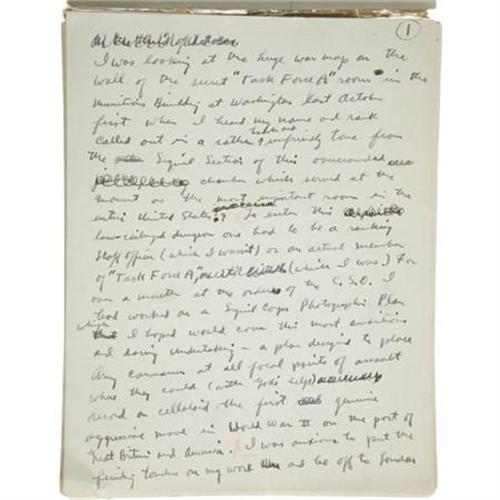 1
I was looking at the huge war map on the
wall of the secret "Task Force A" room in the
Munitions Building at Washington last October
first when I heard my name and rank
called out in a rather unfriendly tone from
the Signal Section of this overcrowded
chamber which served at the
moment as the most important room in the
entire United States. To enter this
low-ceilinged dungeon one had to be a ranking
Staff officer (which I wasn't) or an actual member
of "Task Force A," (which I was.) For
over a month at the orders of the C.S.O. I
had worked on a Signal Corps Photographic Plan
which I hoped would cover this most ambitious
and daring undertaking - a plan designed to place
Army cameramen at all focal points of assault
where they could (with God's help)
record on celluloid the first genuine
aggressive move in World War II on the part of
Great Britain and America. I was anxious to put the
finishing touches on my work and be off to London